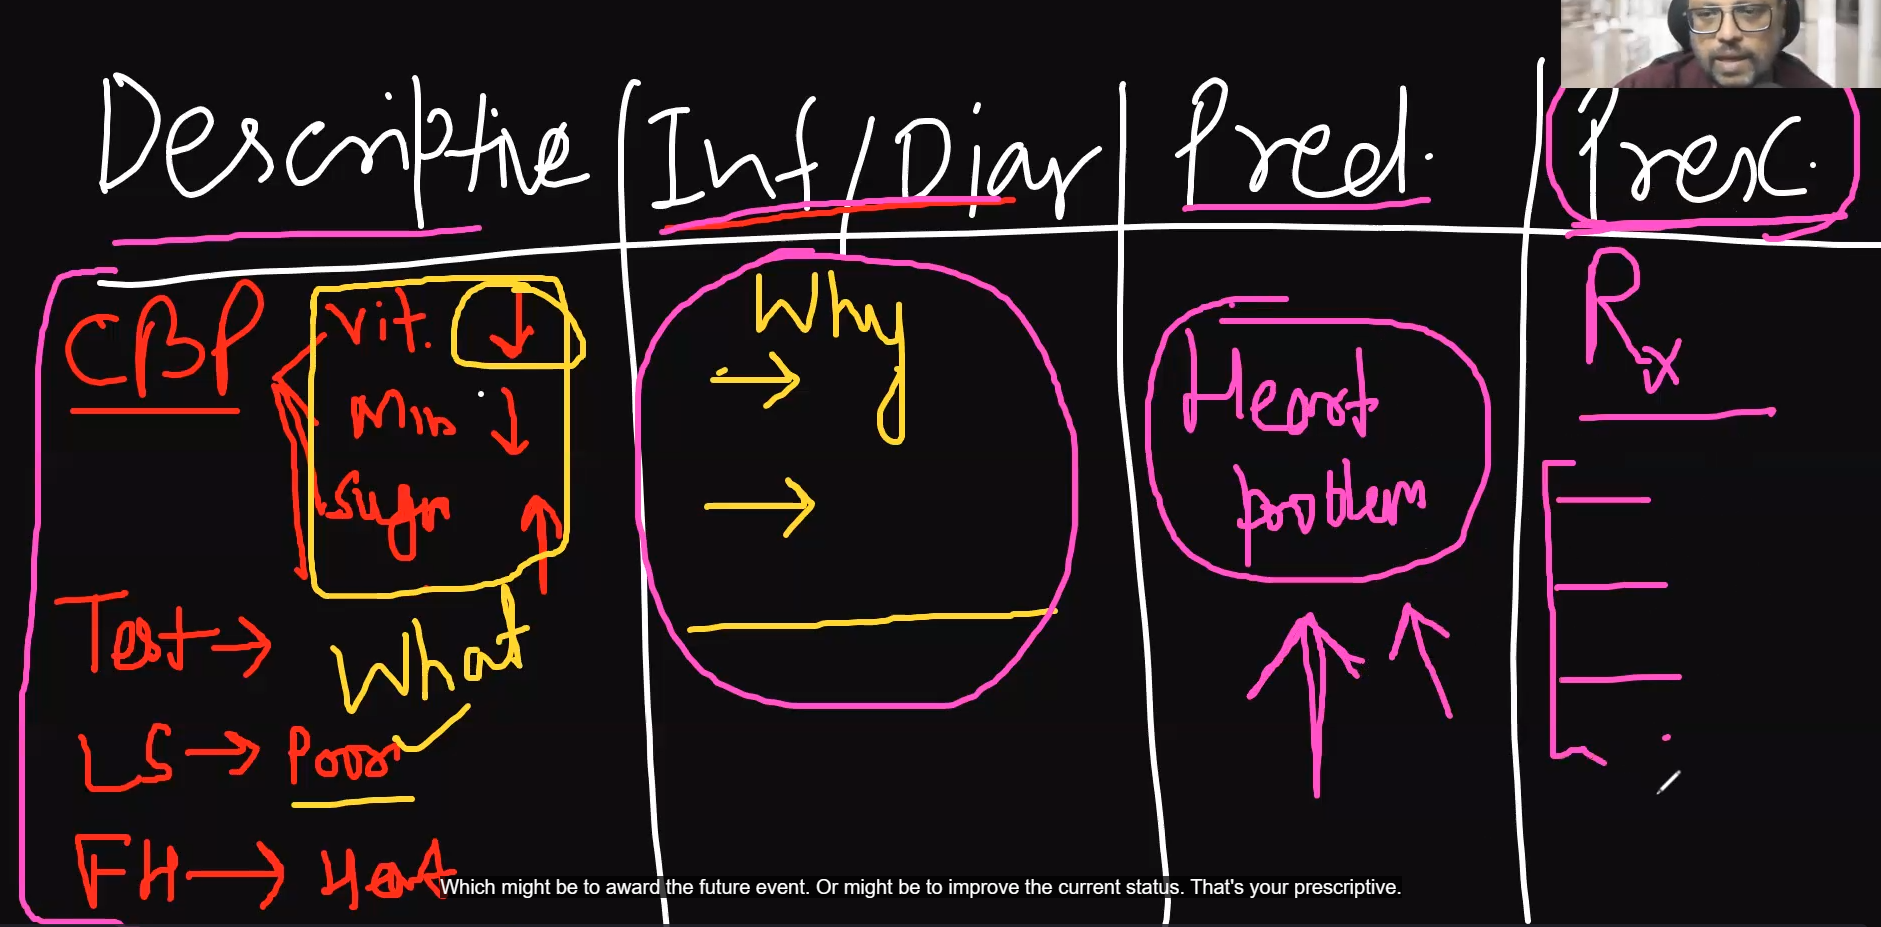 Descriptive Inf/Diag Pred. Presc.
CBP Vit. ↓
Min ↓
Sugr ↑
Why
→
→
Heart
problem
Rx
Test →
What
LS → Poor
FH → Heat
Which might be to award the future event. Or might be to improve the current status. That's your prescriptive.